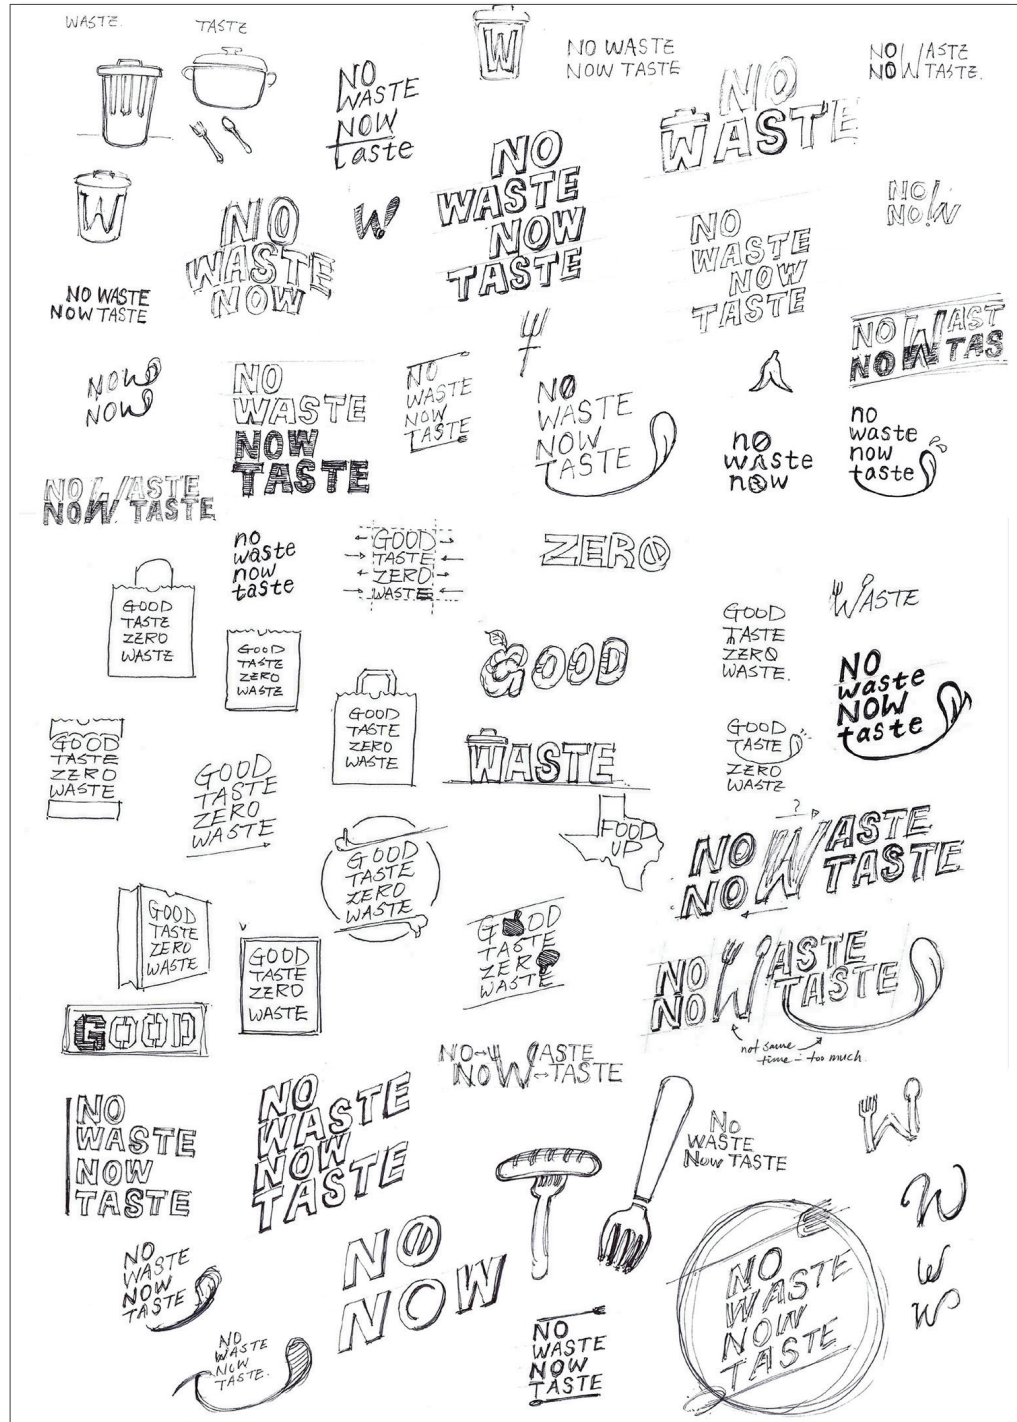 WASTE.
TASTE
NO
WASTE
NOW
taste
W
NO WASTE
NOW TASTE
NO WASTE
NOW TASTE.
NO
WASTE
W
NO
WASTE
NOW
W
NO
WASTE
NOW
TASTE
NO
WASTE
NOW
TASTE
NO!
NOW
NO WASTE
NOW TASTE
NO WAST
NOW TAS
NOW
NOW
NO
WASTE
NOW
TASTE
NO
WASTE
NOW
TASTE
NO
WASTE
NOW
TASTE
no
waste
now
no
waste
now
taste
NO WASTE
NOW TASTE
no
waste
now
taste
GOOD
TASTE
ZERO
WASTE
ZERO
WASTE
GOOD
TASTE
ZERO
WASTE
GOOD
TASTE
ZERO
WASTE
GOOD
GOOD
TASTE
ZERO
WASTE.
NO
waste
NOW
taste
GOOD
TASTE
ZERO
WASTE
GOOD
TASTE
ZERO
WASTE
GOOD
TASTE
ZERO
WASTE
WASTE
GOOD
TASTE
ZERO
WASTE
FOOD
UP
?
NO WASTE
NOW TASTE
GOOD
TASTE
ZERO
WASTE
GOOD
TASTE
ZERO
WASTE
GOOD
TASTE
ZERO
WASTE
GOOD
TASTE
ZERO
WASTE
NO WASTE
NOW TASTE
not same
time - too much.
GOOD
NO WASTE
NOW TASTE
NO
WASTE
NOW
TASTE
NO
WASTE
NOW
TASTE
NO
WASTE
NOW TASTE
W
W
W
W
NO
WASTE
NOW
TASTE
NO
NOW
NO
WASTE
NOW
TASTE
NO
WASTE
NOW
TASTE.
NO
WASTE
NOW
TASTE